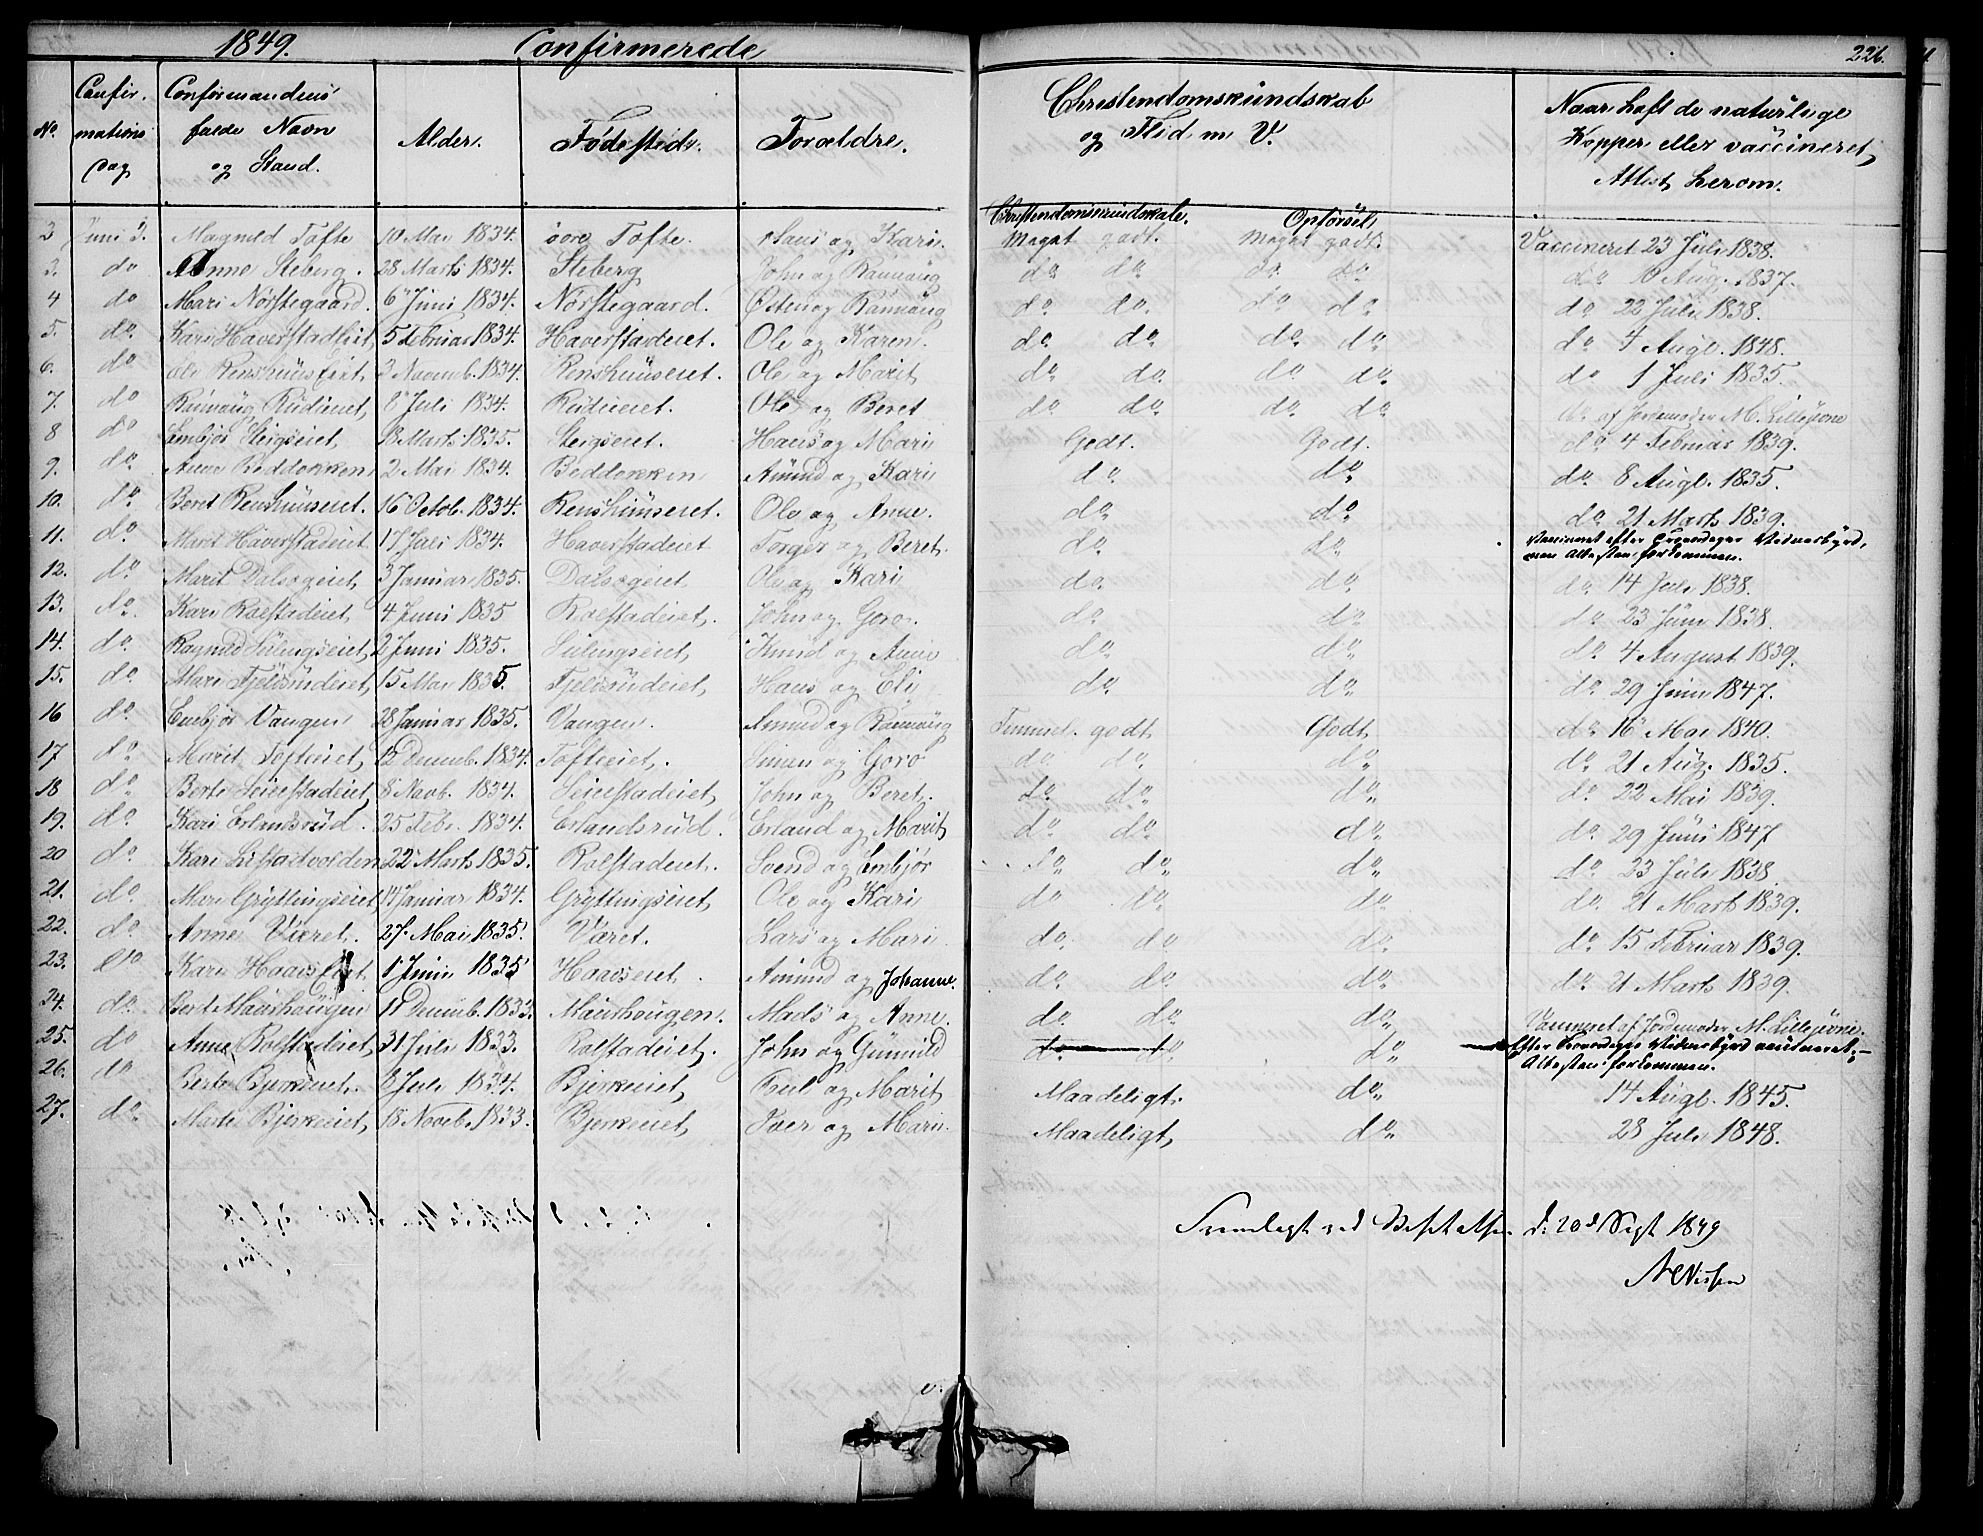 1849. Confirmerede 226.
No. Confirmations Dag Confirmandens fulde Navn og Stand. Alder. Fødested. Forældre. Christendomskundskab og Flid m. V. Naar haft de naturlige Kopper eller vaccineret, Attest herom.
Christendomskundskab. Opførsel,
2 Juni 3. Magnild Tofte 10 Mai 1834. øvre Tofte. Hans og Kari. Meget godt. Meget godt. Vaccineret 23 Juli 1838.
3. do Anne Steberg. 28 Marts 1834. Steberg John og Rannaug do do do do do 6 Aug. 1837.
4 do Mari Nørstegaard. 6 Juni 1834. Nørstegaard. Østen og Rannaug do do do do do 22 Juli 1838.
5. do Kari Haverstadeiet, 5 Februar 1834. Haverstadeiet. Ole og Karen. do do do do do 4 Augl. 1848.
6. do Ole Renshuuseiet 2 Novemb. 1834. Renshuuseiet. Ole og Marit do do do do do 1 Juli 1835.
7. do Rannaug Rudieiet, 8 Juli 1834. Rudieiet. Ole og Beret do do do do do af Jordemoder M. Lillejøvne
8 do Embjør Steigseiet, 18 Marts 1835. Steigseiet. Hans og Mari Godt. Godt. do 4 Februar 1839.
9. do Anne Beddokken 2 Mai 1834. Beddokken Amund og Kari do do do 8 Augl. 1835.
10. do Beret Renshuuseiet. 16 Octob. 1834. Renshuuseiet. Ole og Anne. do do do 21 Marts 1839.
11. do Marit Haverstadeiet 17 Juli 1834. Haverstadeiet Torger og Beret. do do Vaccineret efter Troværdiges Vidnesbyrd, men Attesten forkommen.
12. do Marit Dalsøgeiet, 3 Januar 1835. Dalsøgeiet Ole og Kari do do do 14 Juli 1838.
13. do Kari Rolstadeiet, 4 Juni 1835 Rolstadeiet. John og Goro. do do do 23 Juni 1838.
14. do Ragnild Sulungseiet, 2 Juni 1835. Sulungseiet, Knud og Anne do do do 4 August 1839.
15. do Mari Fjeldrudeiet, 15 Mai 1835. Fjeldrudeiet, Hans og Eli do do do 29 Juni 1847.
16 do Embjør Vangen 28 Januar 1835. Vangen. Amund og Rannaug Temmel. godt Godt do 16 Mai 1840.
17 do Marit Tofteiet, 12 Decemb. 1834. Tofteiet, Simen og Goro do do do do 21 Aug. 1835.
18 do Berte Leiestadeiet 8 Novb. 1834. Leiestadeiet, John og Beret. do do do do 22 Mai 1839.
19. do Kari Erlandsrud. 25 Febr. 1834. Erlandsrud. Erland og Marit do do do do 29 Juni 1847
20 do Kari Listadvolden 22 Marts 1835. Rolstadeiet. Svend og Embjør do do do do 23 Juli 1838.
21. do Mari Gryttingseiet, 14 Januar 1834. Gryttingseiet, Ole og Kari do do do do 21 Marts 1839.
22. do Anne Viæret. 27 Mai 1835. Været. Lars og Mari do do do do 15 Februar 1839.
23. do Kari Haavseiet. 1 Juni 1835 Haavseiet. Amund og Johanne. do do do do 21 Marts 1839.
24. do Berte Maurhougen 11 Decemb. 1833. Maurhougen. Mads og Anne. do do do Vaccineret af Jordemoder M. Lillejøvne.
25. do Anne Rolstadeiet, 31 Juli 1833. Rolstadeiet. John og Gunnild do do do Efter Troværdiges Vidnesbyrd vaccineret. Attesten forkommen.
26. do Berte Bjerkeiet. 8 Juli 1834. Bjerkeiet, og Marit Maadeligt. do 14 Augl. 1845.
27. do Mari Bjerkeiet, 18 Novb. 1833. Bjerkeiet, Iver og Mari. Maadeligt, do 28 Juli 1848.
Fremlagt ved d. 20d Sept 1849